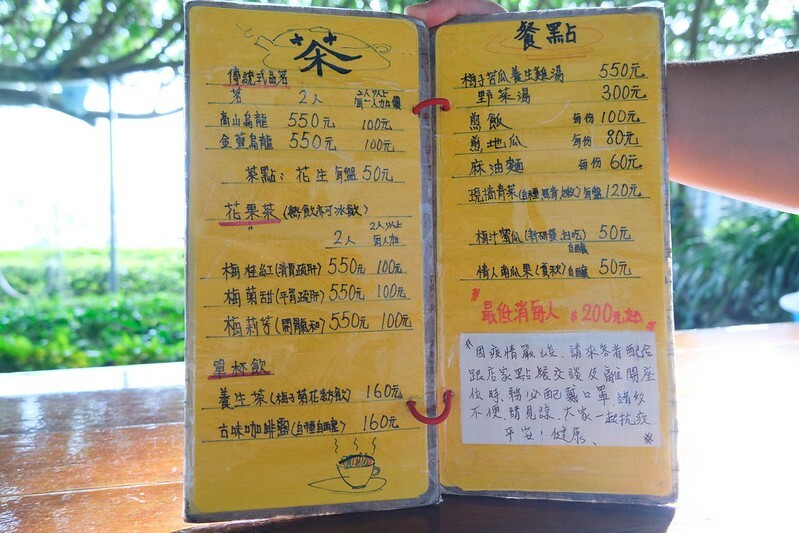 茶
傳統式品茗
茗 2人 2人以上每一人加價
高山烏龍 550元 100元
金萱烏龍 550元 100元
茶點：花生 每盤 50元
花果茶(熱飲亦可冰飲)
2人 2人以上每人加
梅桂紅(消胃疏肝) 550元 100元
梅菊甜(平胃疏肝) 550元 100元
梅莉芽(開關和) 550元 100元
單杯飲
養生茶(梅子菊花熱飲) 160元
古味咖啡(自種自曬) 160元
餐點
梅子苦瓜養生雞湯 550元
野菜湯 300元
煎飯 每份 100元
煎地瓜 每份 80元
麻油麵 每份 60元
現摘青菜 每盤 120元
梅汁蜜瓜 自釀 50元
情人南瓜果 自釀 50元
最低消每人 $200元起
因疫情嚴峻，請來客者配合
跟店家點餐交談及離開座
位時，務必配戴口罩，諸多
不便，請見諒，大家一起抗疫
平安！健康、